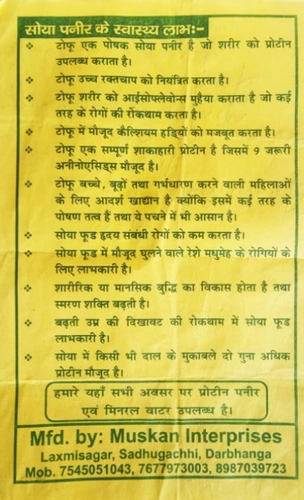 सोया पनीर के स्वास्थ्य लाभ:-
टोफू एक पोषक सोया पनीर है जो शरीर को प्रोटीन
उपलब्ध कराता है।
टोफू उच्च रक्तचाप को नियंत्रित करता है।
टोफू शरीर को आईसोफ्लेवोन्स मुहैया कराता है जो कई
तरह के रोगों की रोकथाम करता है।
टोफू में मौजूद कैल्शियम हड्डियों को मजबूत करता है।
टोफू एक सम्पूर्ण शाकाहारी प्रोटीन है जिसमें 9 जरूरी
अनीनोएसिड्स मौजूद है।
टोफू बच्चे, बूढ़ों तथा गर्भधारण करने वाली महिलाओं
के लिए आदर्श खाद्यान है क्योंकि इसमें कई तरह के
पोषण तत्व हैं तथा ये पचने में भी आसान है।
सोया फूड हृदय संबंधी रोगों को कम करता है।
सोया फूड में मौजूद घुलने वाले रेशे मधुमेह के रोगियों के
लिए लाभकारी है।
शारीरिक या मानसिक बुद्धि का विकास होता है तथा
स्मरण शक्ति बढ़ती है।
बढ़ती उम्र की दिखावट की रोकथाम में सोया फूड
लाभकारी है।
सोया में किसी भी दाल के मुकाबले दो गुना अधिक
प्रोटीन मौजूद है।
हमारे यहाँ सभी अवसर पर प्रोटीन पनीर
एवं मिनरल वाटर उपलब्ध है।
Mfd. by: Muskan Interprises
Laxmisagar, Sadhugachhi, Darbhanga
Mob. 7545051043, 7677973003, 8987039723